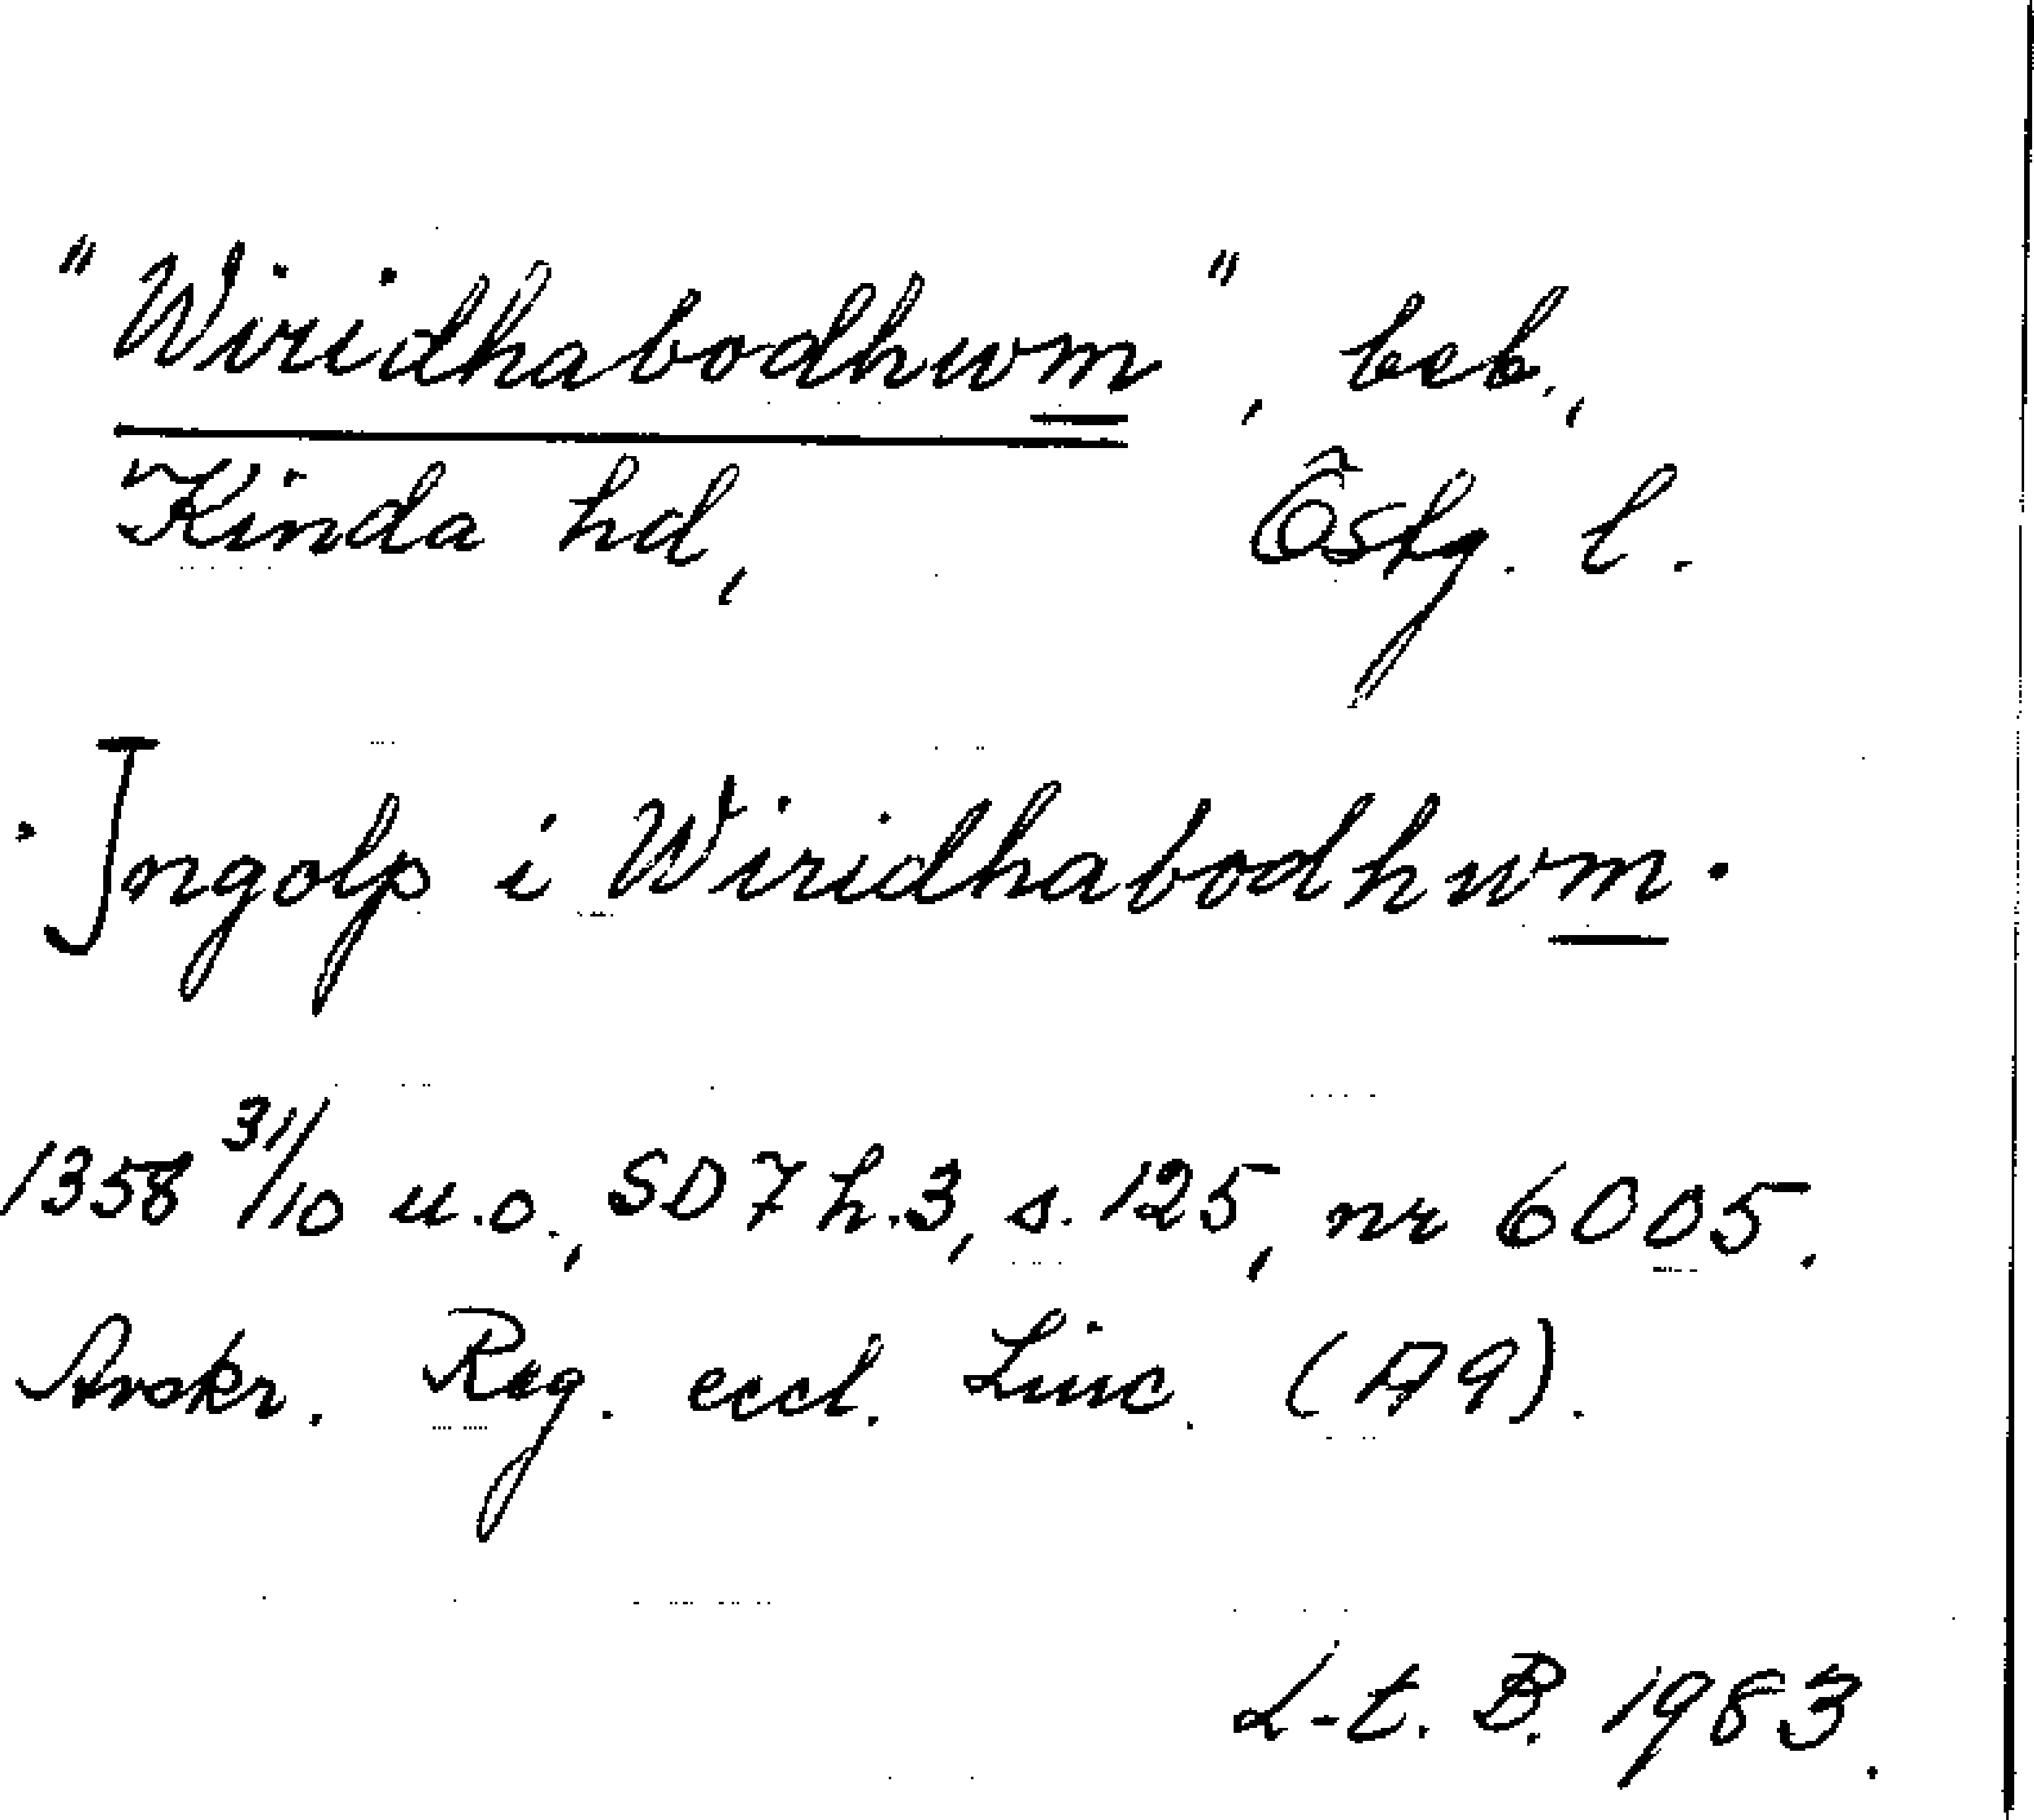 "Wiridhabodhwm", beb.,
Kinda hd, Östg. l.
Jngolp i Wiridhabodhwm.
1358 31/10 u.o., SD 7 h.3, s. 125, nr 6005.
Avskr. Reg. eccl. Linc. (A9).
L-t. B. 1983.